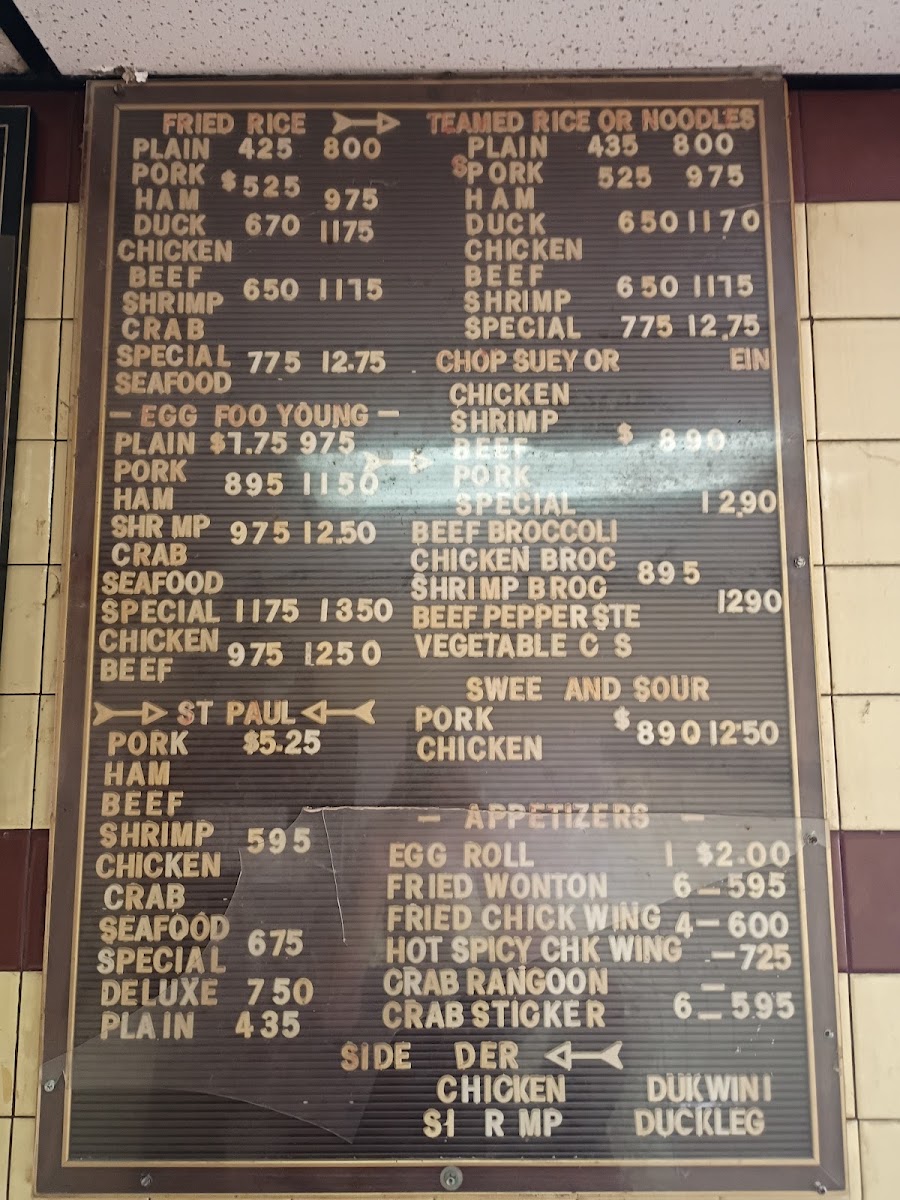 FRIED RICE
PLAIN 425 800
PORK $525
HAM 975
DUCK 670 1175
CHICKEN
BEEF
SHRIMP 650 1175
CRAB
SPECIAL 775 12.75
SEAFOOD
— EGG FOO YOUNG —
PLAIN $7.75 975
PORK
HAM 895 1150
SHR MP 975 12.50
CRAB
SEAFOOD
SPECIAL 1175 1350
CHICKEN
BEEF 975 1250
ST PAUL
PORK $5.25
HAM
BEEF
SHRIMP 595
CHICKEN
CRAB
SEAFOOD
SPECIAL 675
DELUXE 750
PLAIN 435
TEAMED RICE OR NOODLES
PLAIN 435 800
$PORK 525 975
HAM
DUCK 650 1170
CHICKEN
BEEF
SHRIMP 650 1175
SPECIAL 775 12.75
CHOP SUEY OR EIN
CHICKEN
SHRIMP
BEEF $ 890
PORK
SPECIAL 12.90
BEEF BROCCOLI
CHICKEN BROC
SHRIMP BROC 895
BEEF PEPPER STE 1290
VEGETABLE C S
SWEE AND SOUR
PORK
CHICKEN $890 1250
— APPETIZERS —
EGG ROLL 1 $2.00
FRIED WONTON 6 — 595
FRIED CHICK WING 4 — 600
HOT SPICY CHK WING — 725
CRAB RANGOON —
CRAB STICKER 6 — 595
SIDE DER
CHICKEN DUKWIN I
S1 R MP DUCKLEG